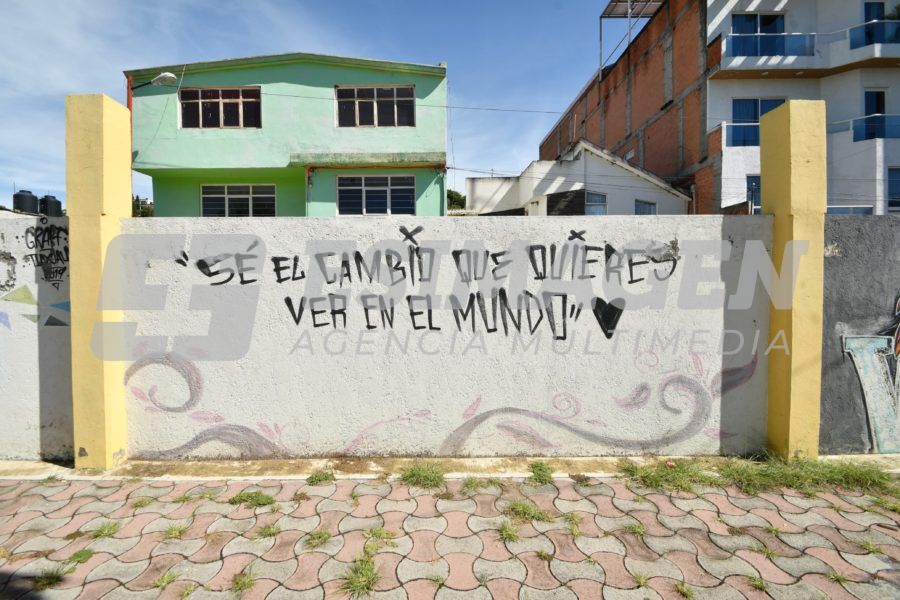 "SÉ EL CAMBIO QUE QUIERES
VER EN EL MUNDO"
ESIMAGEN
AGENCIA MULTIMEDIA